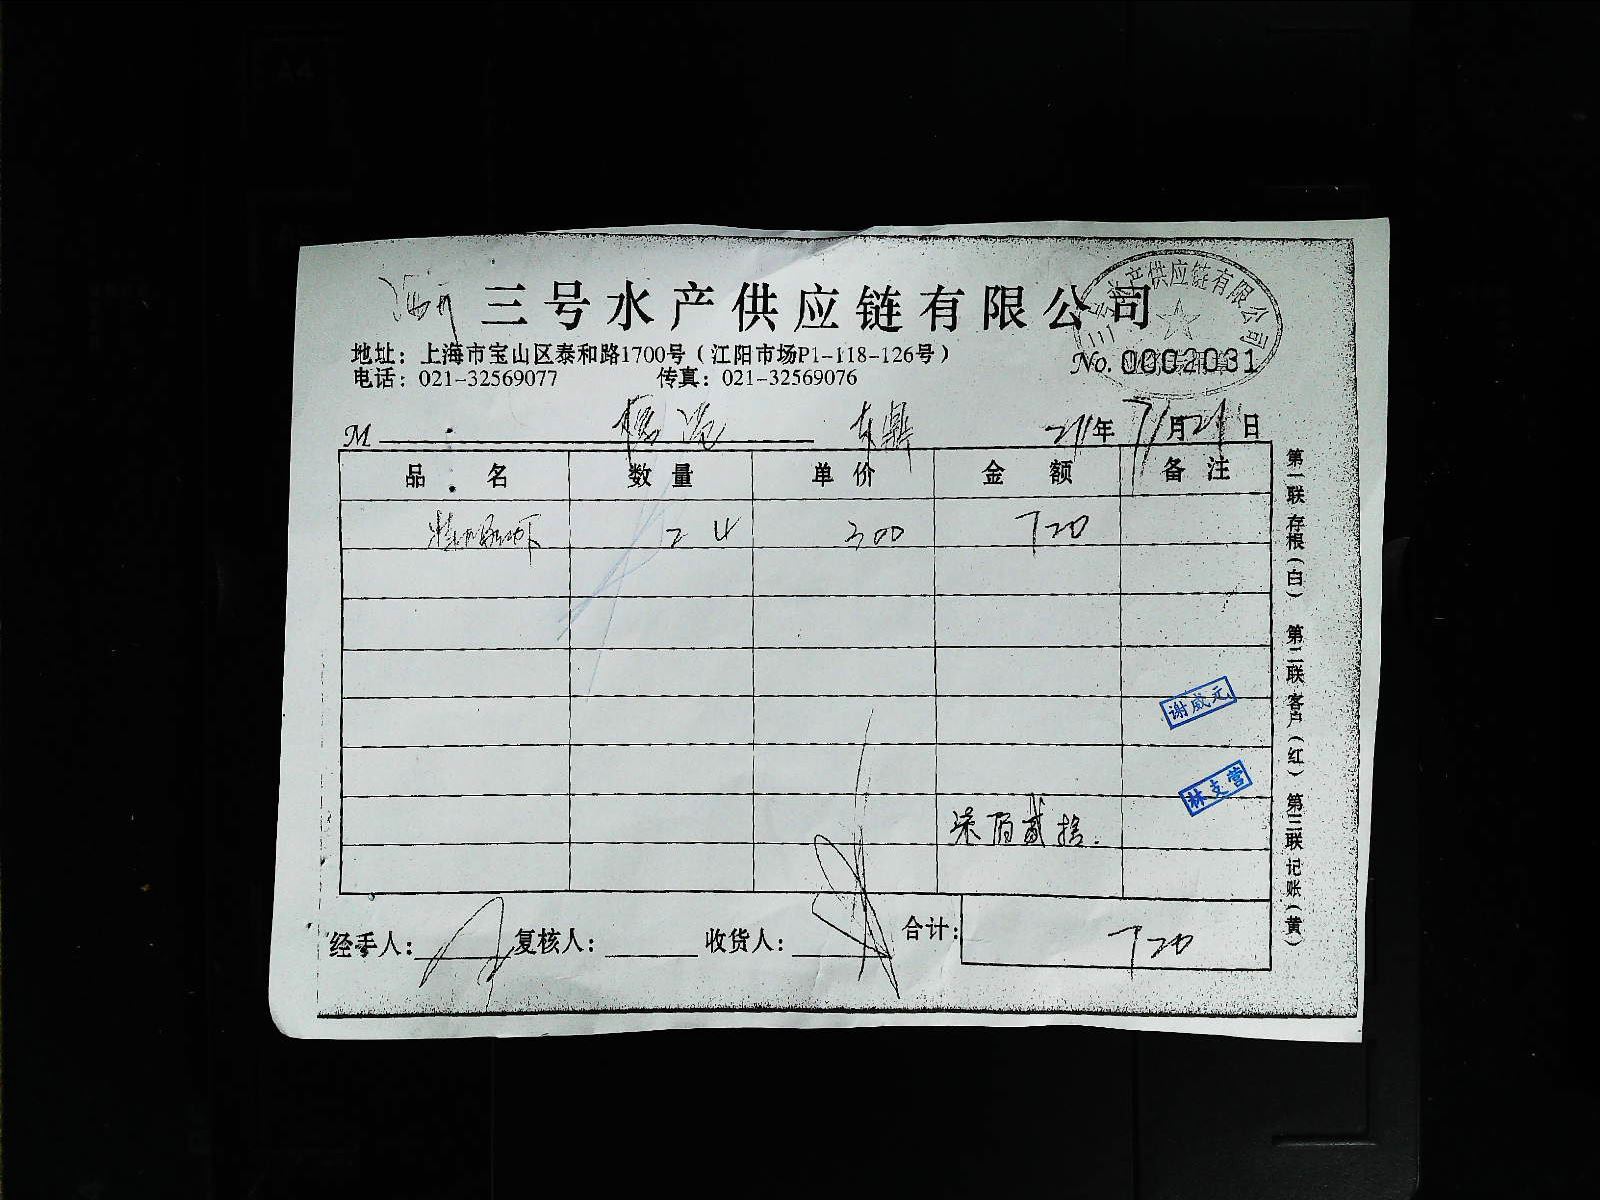 三号水产供应链有限公司
三号水产供应链有限公司
地址：上海市宝山区泰和路1700号（江阳市场P1-118-126号）
No.0002031
电话：021-32569077 传真：021-32569076
M 年 月 日
品名 数量 单价 金额 备注
24 300 720
谢威元
林支营
柒佰贰拾.
经手人： 复核人： 收货人： 合计： 720
第一联存根（白） 第二联客户（红） 第三联记账（黄）